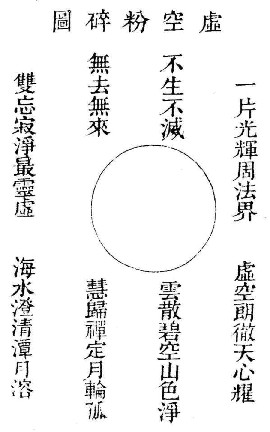 虛空粉碎圖
一片光輝周法界
虛空朗徹天心耀
不生不滅
雲散碧空山色淨
無去無來
慧歸禪定月輪孤
雙忘寂淨最靈虛
海水澄清潭月溶